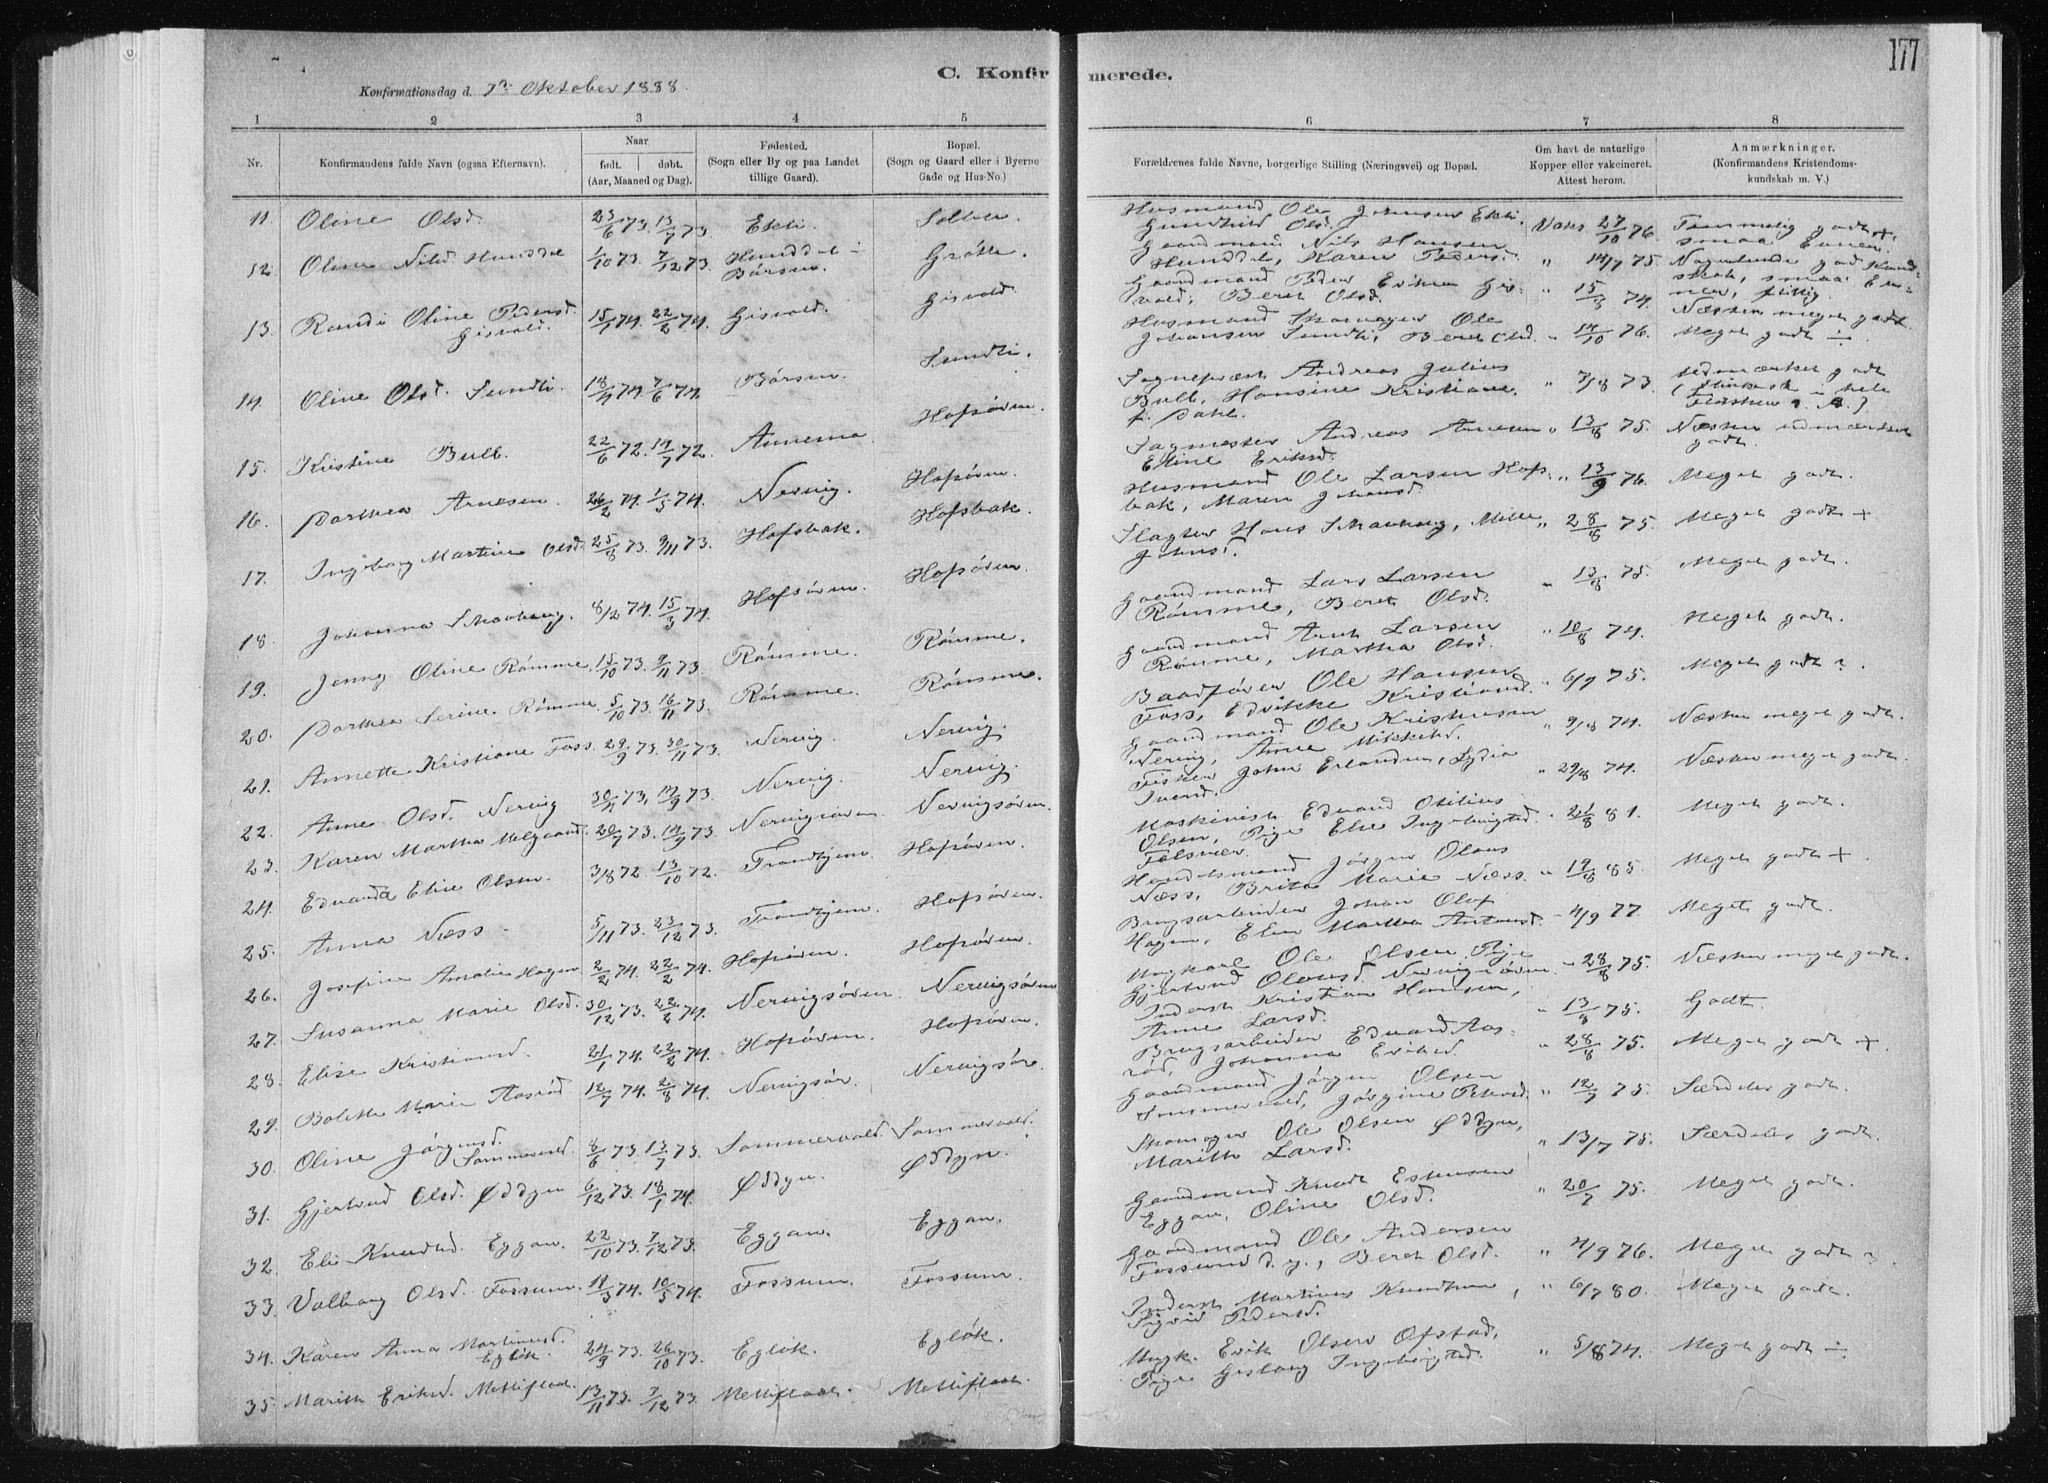 177
C. Konfirmerede.
Konfirmationsdag d. 7de Oktober 1888.
1 2 3 4 5 6 7 8
Nr. Konfirmandens fulde Navn (ogsaa Efternavn). Naar født. døbt. (Aar, Maaned og Dag). Fødested. (Sogn eller By og paa Landet tillige Gaard). Bopæl. (Sogn og Gaard eller i Byerne Gade og Hus-No.) Forældrenes fulde Navne, borgerlige Stilling (Næringsvei) og Bopæl. Om havt de naturlige Kopper eller vakcineret. Attest herom. Anmærkninger. (Konfirmandens Kristendomskundskab m. V.)
11. Oline Olsd. 23/6 73. 13/7 73. Ekli Husmand Ole Johnsen Ekli, Gunhild Olsd. Vakc. 27/10 76. Temmelig godt + smaa Evner.
12. Oline Nilsd. Hunddal 1/10 73. 7/12 73. Hunddal i Børsen. Grøtte. Gaardmand Nils Hansen Hunddal, Karen Peders. " 14/7 75. god Kundskab, smaa Evner, flittig.
13. Randi Oline Pedersd. Gisvold. 15/1 74. 22/2 74. Gisvold. Gisvold. Gaardmand Peder Eriksen Gisvold, Beret Olsd. " 15/8 74. Næsten meget godt.
14. Oline Olsd. Sundli. 18/4 74. 7/6 74. Børsen. Sundli. Husmand Skomager Ole Johansen Sundli, Beret Olsd. " 14/10 76. Meget godt ÷.
15. Kristine Bull. 22/6 72. 14/7 72. Annema Hofsøren. Sognepræst Andreas Julius Bull, Hansine Kristiane, f. Dahl. " 7/8 73. Udmærket godt
16. Dorthea Arnesen. 26/2 74. 1/5 74. Nervig. Hofsøren. Sagmester Andreas Arnesen Eline Eriksd. " 13/8 75. Næsten udmærket godt.
17. Ingeborg Martine Olsd. 25/8 73. 9/11 73. Hofsbak. Hofsbak. Husmand Ole Larsen Hofsbak, Maren Johansd. " 13/9 76. Meget godt.
18. Johanna Skavhaug. 8/2 74. 15/3 74. Hofsøren. Hofsøren. Slagter Hans Skavhaug, Mille Johnsd. " 28/8 75. Meget godt +
19. Jenny Oline Rømme. 15/10 73. 9/11 73. Rømme. Rømme. Gaardmand Lars Larsen Rømme, Beret Olsd. " 13/8 75. Meget godt.
20. Dorthea Serine Rømme. 5/10 73. 16/11 73. Rømme. Rømme. Gaardmand Arnt Larsen Rømme, Martha Olsd. " 10/8 74. Meget godt.
21. Annette Kristiane Foss. 29/9 73. 30/11 73. Nervig. Nervig. Baadfører Ole Hansen Foss, Edvikke Kristiansd. " 6/7 75. Meget godt ?.
22. Anne Olsd. Nervig 30/4 73. 14/9 73. Nervig. Nervig. Gaardmand Ole Kristensen Nervig, Anne Mikkelsd. " 9/8 74. Næsten meget godt.
23. Karen Martha Melgaard. 20/7 73. 14/9 73. Nervigsøren Nervigsøren. Fisker John Erlandsen, Lydia Iversd. " 29/8 74. Næsten meget godt.
24. Edvarda Elise Olsen. 3/8 72. 13/10 72. Trondhjem. Hofsøren. Maskinist Edvard Otilius Olsen, Pige Else Ingebrigtsd. " 21/8 81. Meget godt.
25. Anna Næss. 5/11 73. 23/12 73. Trondhjem. Hofsøren. Handelsmand Jørgen Olaus Næss, Brita Marie Næss. " 19/8 85. Meget godt +.
26. Josefine Amalie Hagen 2/2 74. 22/2 74. Hofsøren. Hofsøren. Brugsarbeider Johan Olof Hagen, Elen Martha Antonsd. " 4/9 77. Meget godt.
27. Susanna Marie Olsd. 30/12 73. 22/2 74. Nervigsøren Nervigsøren Ungkarl Ole Olsen, Pige Gjertrud Olausd. Nervigsøren. " 28/8 75. Næsten meget godt.
28. Elise Kristiansd. 21/1 74. 22/2 74. Hofsøren. Hofsøren. Inderst Kristian Hansen, Anne Larsd. " 13/8 75. Godt
29. Bolette Marie Aasrød 12/7 74. 2/8 74. Nervigsør. Nervigsør. Brugsarbeider Edvard Aasrød, Johanna Eriksd. " 28/8 75. Meget godt +.
30. Oline Jørgensd. Sommervold. 8/6 73. 13/7 73. Sommervold. Sommervold. Gaardmand Jørgen Olsen Sommervold, Jørgine Pedersd. " 12/7 75. Særdeles godt.
31. Gjertrud Olsd. Øddyn 6/12 73. 18/1 74. Øddyn. Øddyn. Skomager Ole Olsen Øddyn, Marith Larsd. " 13/7 75. Særdeles godt.
32. Eli Knudsd. Eggan. 22/10 73. 7/12 73. Eggan. Eggan. Gaardmand Knudt Estensen Eggan, Oline Olsd. " 20/7 75. Meget godt.
33. Valborg Olsd. Fossum. 11/3 74. 10/5 74. Fossum. Fossum. Gaardmand Ole Andersen Fossum d. y., Beret Olsd. " 4/9 76. Meget godt ?.
34. Karen Anna Martinusd. Egløk. 24/9 73. 26/10 73. Egløk. Egløk. Inderst Martinus Knudtsen, Sigrid Pedersd. " 6/7 80. Meget godt.
35. Marith Eriksd. Mettiflaat. 13/11 73. 7/12 73 Mettiflaat. Mettiflaat. Ungk. Erik Olsen Ofstad, Pige Gisborg Ingebrigtsd. " 5/8 74. Meget godt ÷